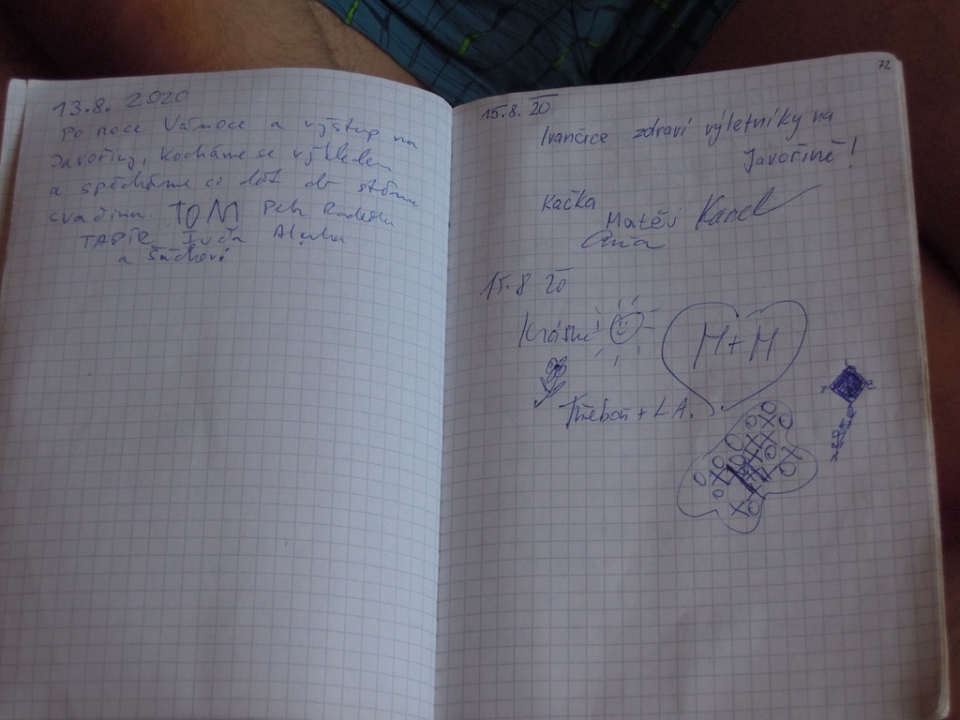 13.8. 2020
Po noce Vánoce a výstup na
Javořici, kocháme se výhledem
a spěcháme si dát do stánu
svačinu. TOM Petr Radežda
TAPÍR Ivča Alenka
a Šáchové
72
15.8. 20
Ivančice zdraví výletníky na
Javořině!
Kačka
Matěj Karel
Aňa
15.8 20
Krásné
M+M
Třeboň + L.A.